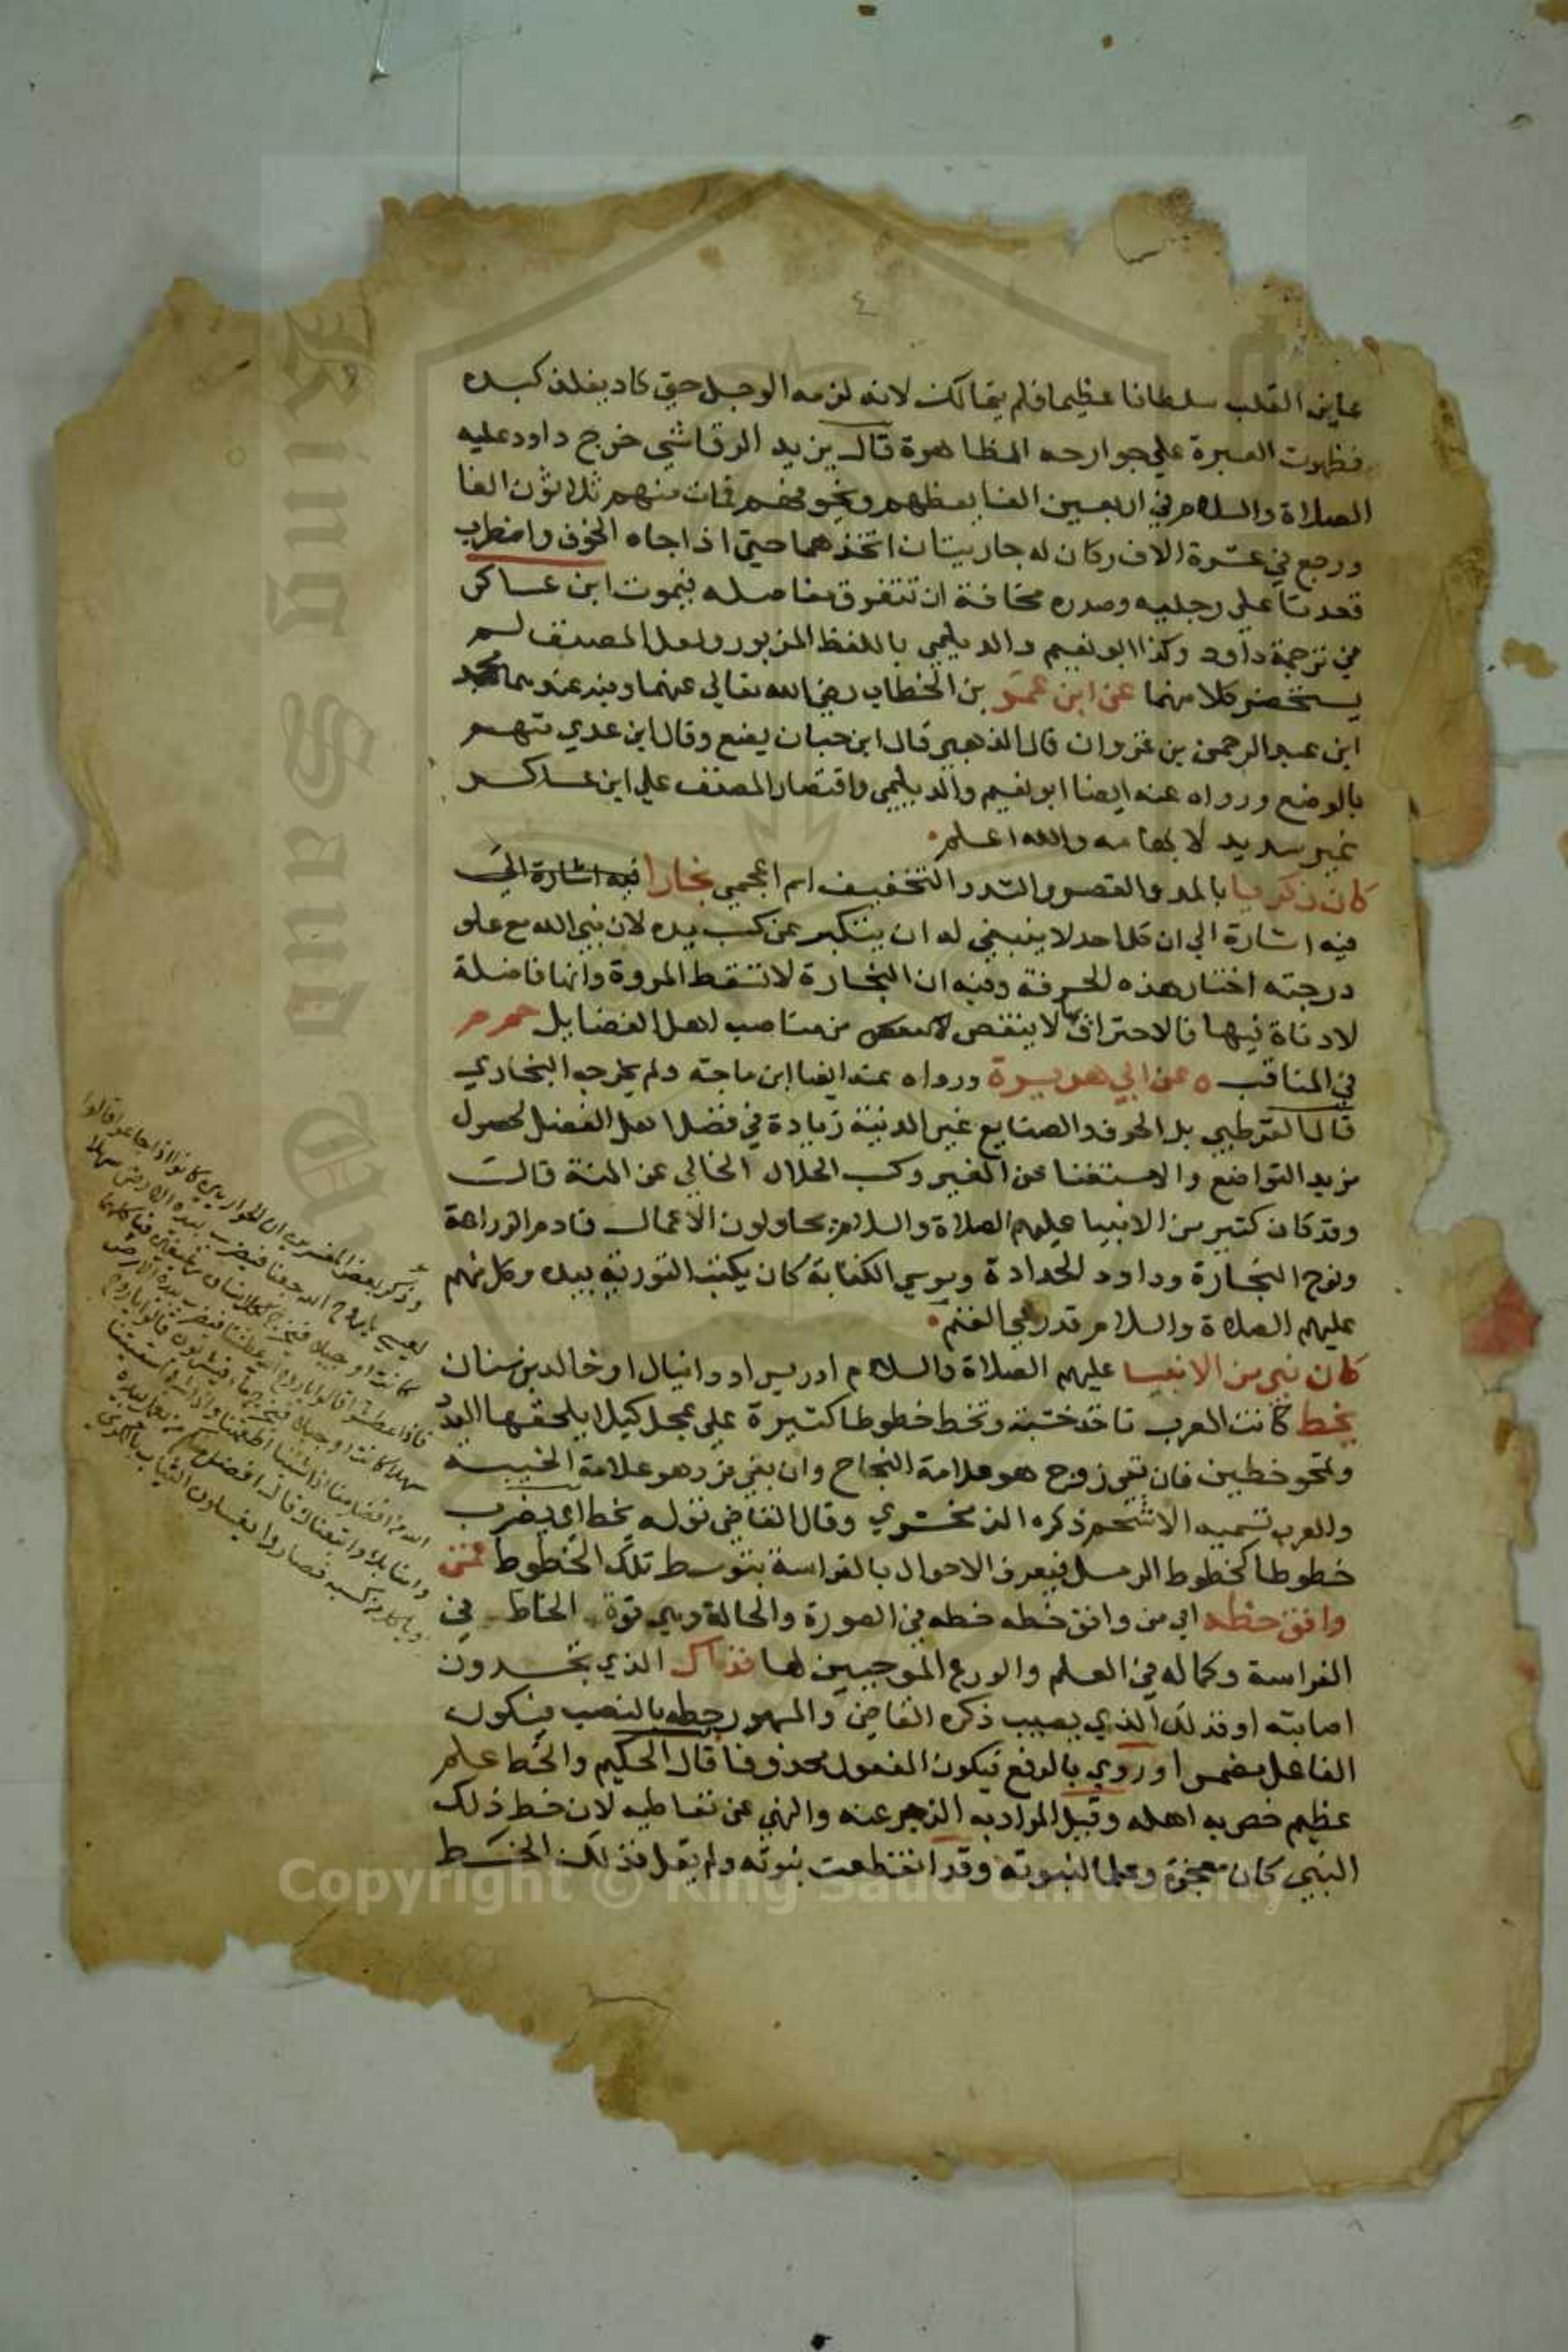 ٤
عاين القلب سلطانا عظيما فلم يتمالك لانه لزمه الوجل حتى كاد يفلذ كبده
فظهرت العبرة علي جوارحه الظاهرة قال يزيد الرقاشي خرج داود عليه
الصلاة والسلام في اربعين الفا يعظهم ويخوفهم فمات منهم ثلاثون الفا
ورجع في عشرة الاف وكان له جاريتان اتخذهما حتى اذا جاه الخوف واضطرب
قعدتا علي رجليه وصدره مخافة ان تتفرق مفاصله فيموت ابن عساكر
في ترجمة داود وكذا ابو نعيم والديلمي باللفظ المزبور ولعل المصنف لم
يستحضر كلا منهما عن ابن عمر بن الخطاب رضي الله تعالي عنهما وفيه عندهما محمد
ابن عبد الرحمن بن غزوان قال الذهبي قال ابن حبان يضع وقال ابن عدي متهم
بالوضع ورواه عنه ايضا ابو نعيم والديلمي واقتصار المصنف علي ابن عساكر
غير سديد لايهامه والله اعلم
كان زكريا بالمد والقصر والشد والتخفيف اسم اعجمي نجارا فيه اشارة الى
فيه اشارة الي ان كل احد لا ينبغي له ان يتكبر عن كسب يده لان نبي الله مع علو
درجته اختار هذه الحرفة وفيه ان النجارة لا تسقط المروة وانها فاضلة
لا دناة فيها فالاحتراف بها لا ينقص من مناصب اهل الفضايل حم م
في المناقب ه عن ابي هريرة ورواه عنه ايضا ابن ماجة ولم يخرجه البخاري
قال القرطبي بل الحرف والصنايع غير الدنية زيادة في فضل اهل الفضل لحصول
مزيد التواضع والاستغنا عن الغير وكسب الحلال الخالي عن المنة قالت
وقد كان كثير من الانبيا عليهم الصلاة والسلام يحاولون الاعمال فادم الزراعة
ونوح النجارة وداود الحدادة وموسي الكتابة كان يكتب التورية بيده وكل منهم
عليهم الصلاة والسلام قد رعي الغنم
كان نبي من الانبيا عليهم الصلاة والسلام ادريس او دانيال او خالد بن سنان
يخط كانت العرب تاخذ خشبة وتخط خطوطا كثيرة علي عجل كيلا يلحقها العدد
وتمحو خطين خطين فان بقي زوج هو علامة النجاح وان بقي فرد هو علامة الخيبة
والعرب تسميه الاسحم ذكره الزمخشري وقال القاضي قوله يخط اي يضرب
خطوطا كخطوط الرمل فيعرف الاحوال بالفراسة بتوسط تلك الخطوط فمن
وافق خطه اي من وافق خطه خطه في الصورة والحالة وهي قوة الخاط في
الفراسة وكماله في العلم والورع الموجبين لها فذاك الذي تجدون
اصابته او فذلك الذي يصيب ذكره القاضي والمشهور خطه بالنصب فيكون
الفاعل مضمرا وروي بالرفع فيكون المفعول محذوفا قال الحكيم والخط علم
عظيم خص به اهله وقيل المراد به الزجر عنه والنهي عن تعاطيه لان خط ذلك
النبي كان معجزة وعلما لنبوته وقد انقطعت نبوته ولم يقل فذلك الخط
وذكر بعض المفسرين ان الحواريين كانوا اذا جاعوا قالوا
لعيسي يا روح الله جعنا فيضرب بيده الارض سهلا
كانت او جبلا فيخرج لكل انسان رغيفين فياكلهما
فاذا عطشوا قالوا يا روح الله عطشنا فيضرب بيده الارض
سهلا كانت او جبلا فيخرج ماء فيشربون قالوا يا روح
الله من افضل منا اذا شئنا اطعمتنا واذا شئنا اسقيتنا
وامنا بك واتبعناك قال افضل منكم من يعمل بيده
وياكل من كسبه فصاروا يغسلون الثياب بالكري
King Saud University
Copyright © King Saud University